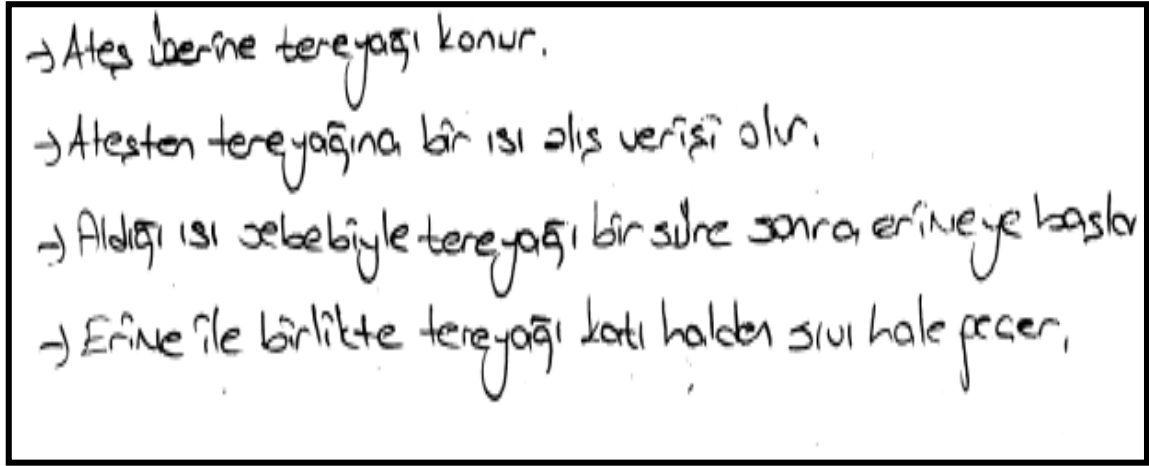 → Ateş üzerine tereyağı konur.
→ Ateşten tereyağına bir ısı alış verişi olur.
→ Aldığı ısı sebebiyle tereyağı bir süre sonra erimeye başlar
→ Erime ile birlikte tereyağı katı halden sıvı hale geçer.